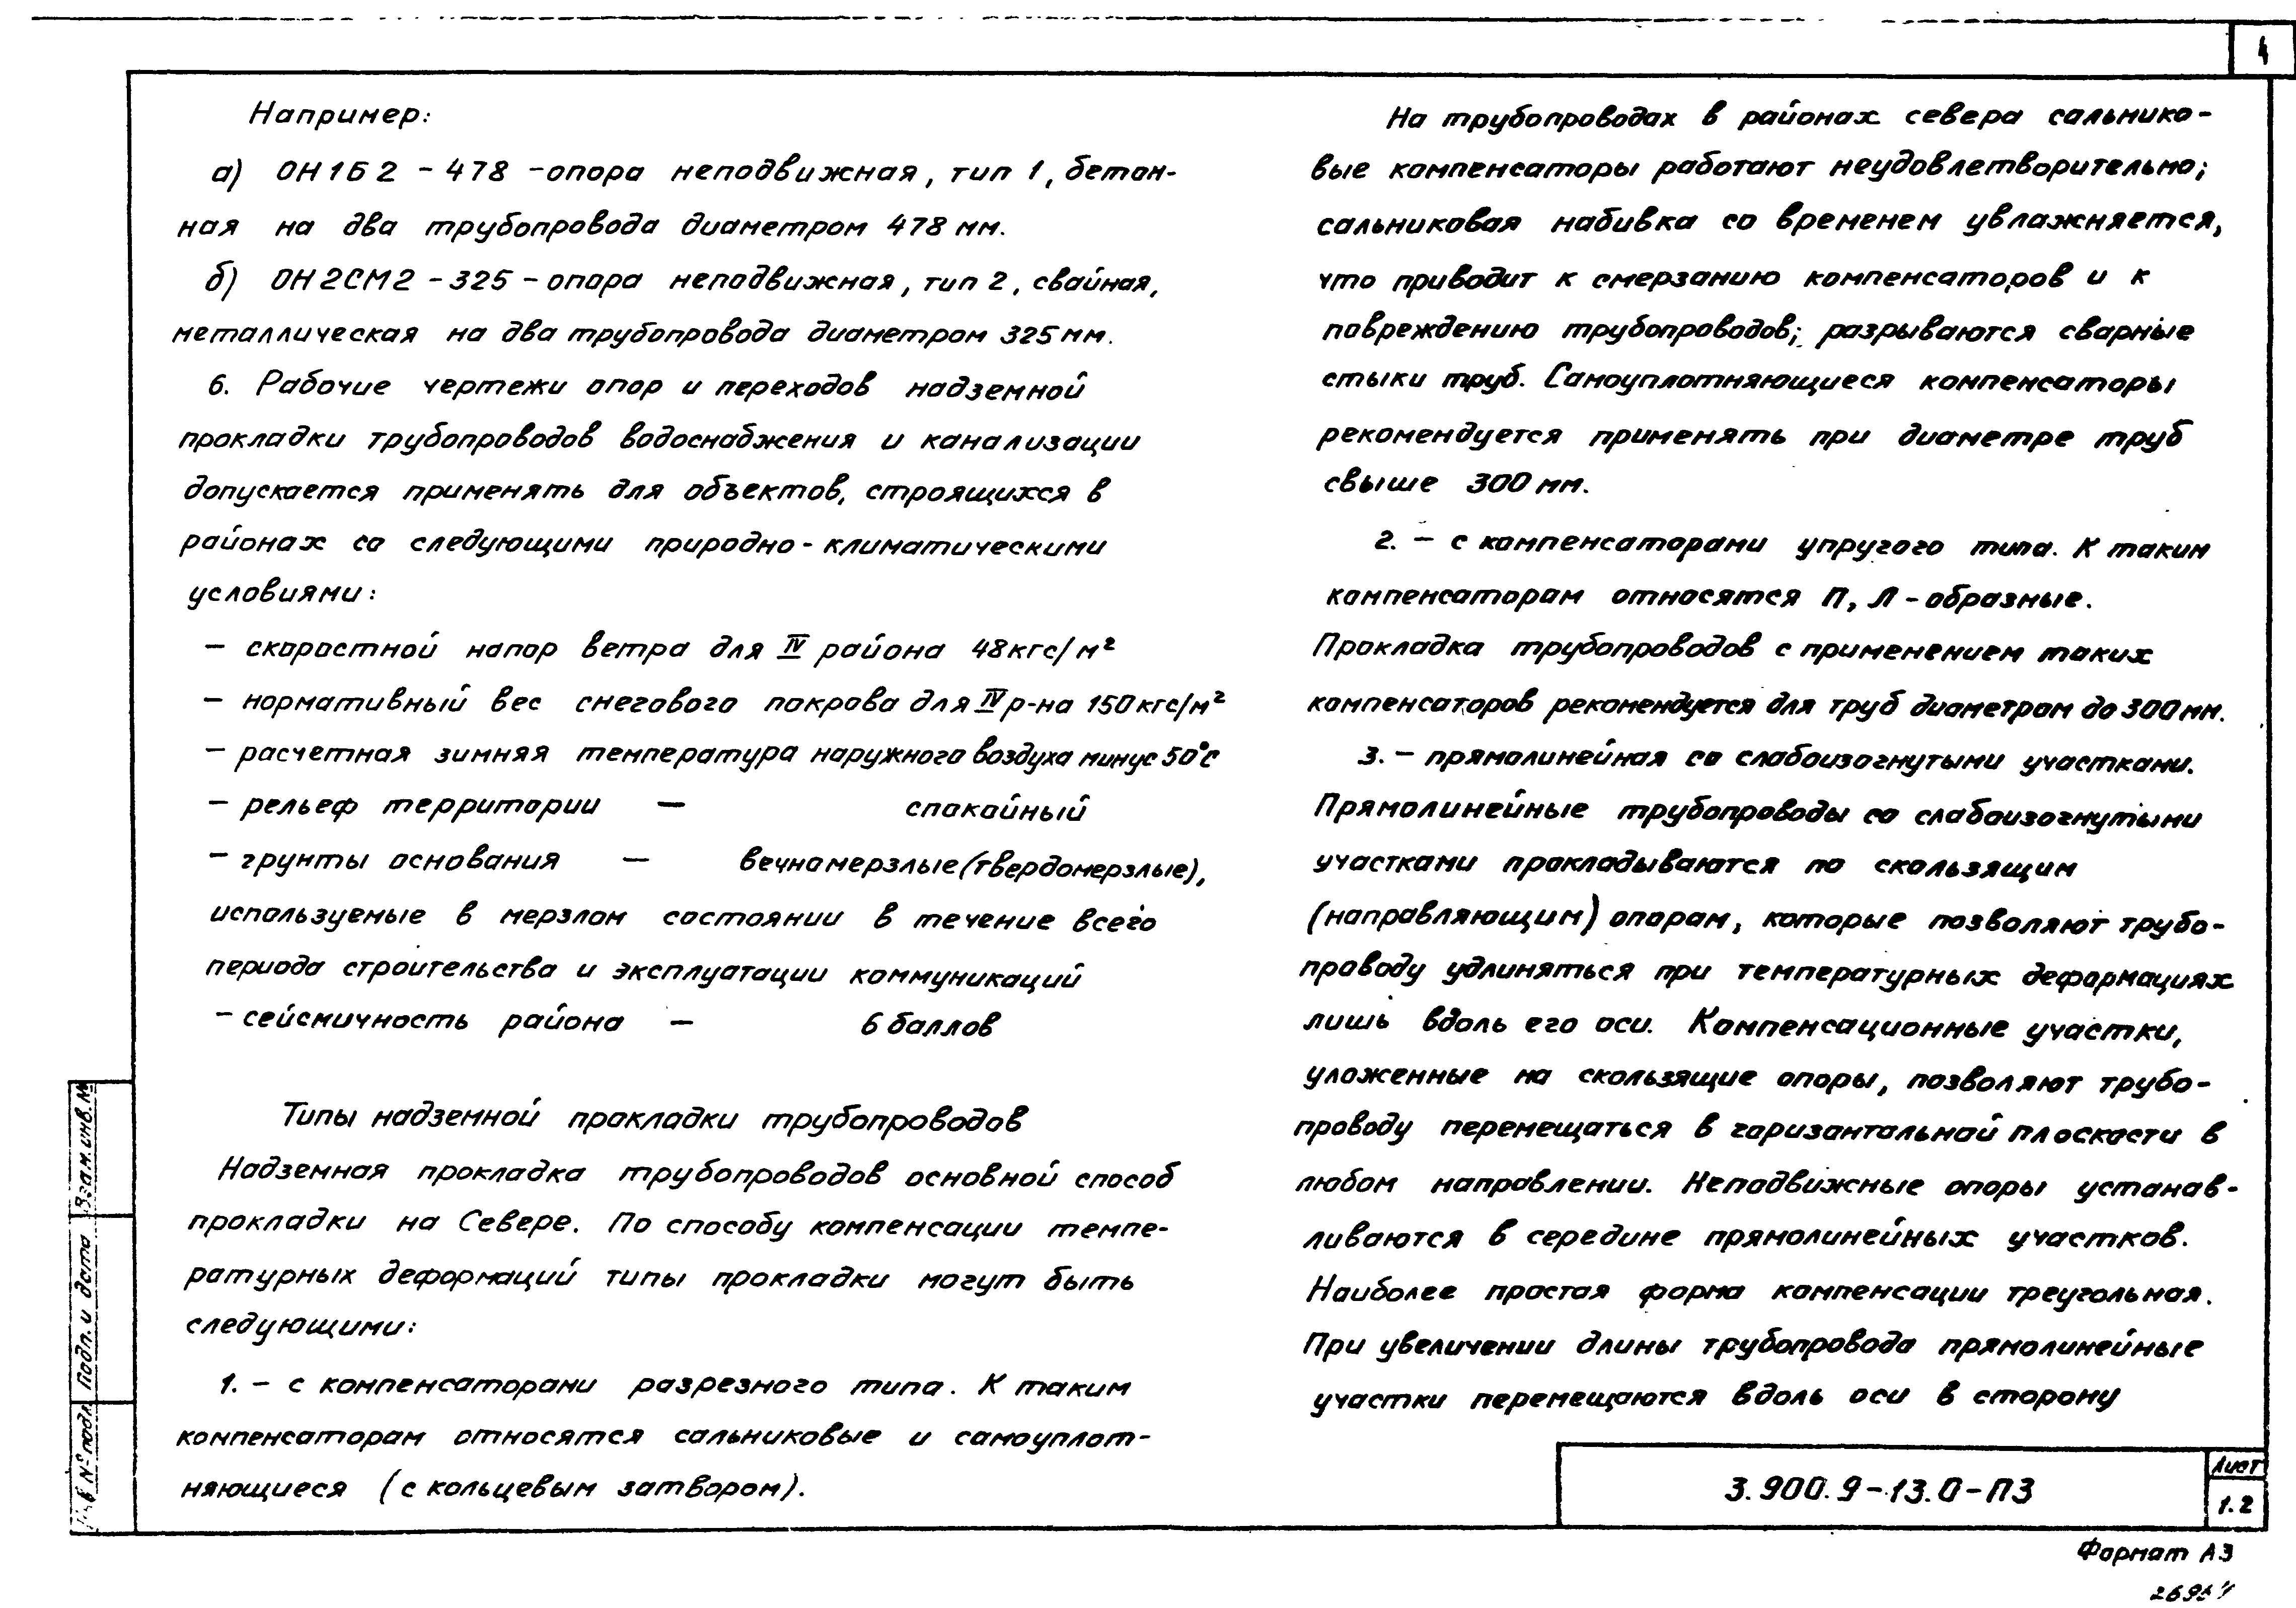 4
Например:
а) ОН1Б2 - 478 - опора неподвижная, тип 1, бетон-
ная на два трубопровода диаметром 478 мм.
б) ОН2СМ2 - 325 - опора неподвижная, тип 2, свайная,
металлическая на два трубопровода диаметром 325 мм.
6. Рабочие чертежи опор и переходов надземной
прокладки трубопроводов водоснабжения и канализации
допускается применять для объектов, строящихся в
районах со следующими природно-климатическими
условиями:
- скоростной напор ветра для IV района 48 кгс/м²
- нормативный вес снегового покрова для IV р-на 150 кгс/м²
- расчетная зимняя температура наружного воздуха минус 50°С
- рельеф территории — спокойный
- грунты основания — вечномерзлые (твердомерзлые),
используемые в мерзлом состоянии в течение всего
периода строительства и эксплуатации коммуникаций
- сейсмичность района — 6 баллов
Типы надземной прокладки трубопроводов
Надземная прокладка трубопроводов основной способ
прокладки на Севере. По способу компенсации темпе-
ратурных деформаций типы прокладки могут быть
следующими:
1. - с компенсаторами разрезного типа. К таким
компенсаторам относятся сальниковые и самоуплот-
няющиеся (с кольцевым затвором).
На трубопроводах в районах севера сальнико-
вые компенсаторы работают неудовлетворительно;
сальниковая набивка со временем увлажняется,
что приводит к смерзанию компенсаторов и к
повреждению трубопроводов; разрываются сварные
стыки труб. Самоуплотняющиеся компенсаторы
рекомендуется применять при диаметре труб
свыше 300 мм.
2. - с компенсаторами упругого типа. К таким
компенсаторам относятся П, Л - образные.
Прокладка трубопроводов с применением таких
компенсаторов рекомендуется для труб диаметром до 300 мм.
3. - прямолинейная со слабоизогнутыми участками.
Прямолинейные трубопроводы со слабоизогнутыми
участками прокладываются по скользящим
(направляющим) опорам, которые позволяют трубо-
проводу удлиняться при температурных деформациях
лишь вдоль его оси. Компенсационные участки,
уложенные на скользящие опоры, позволяют трубо-
проводу перемещаться в горизонтальной плоскости в
любом направлении. Неподвижные опоры устанав-
ливаются в середине прямолинейных участков.
Наиболее простая форма компенсации треугольная.
При увеличении длины трубопровода прямолинейные
участки перемещаются вдоль оси в сторону
Взам. инв. №
Подп. и дата
№ подл.
3.900.9-13.0-ПЗ
Лист
1.2
Формат А3